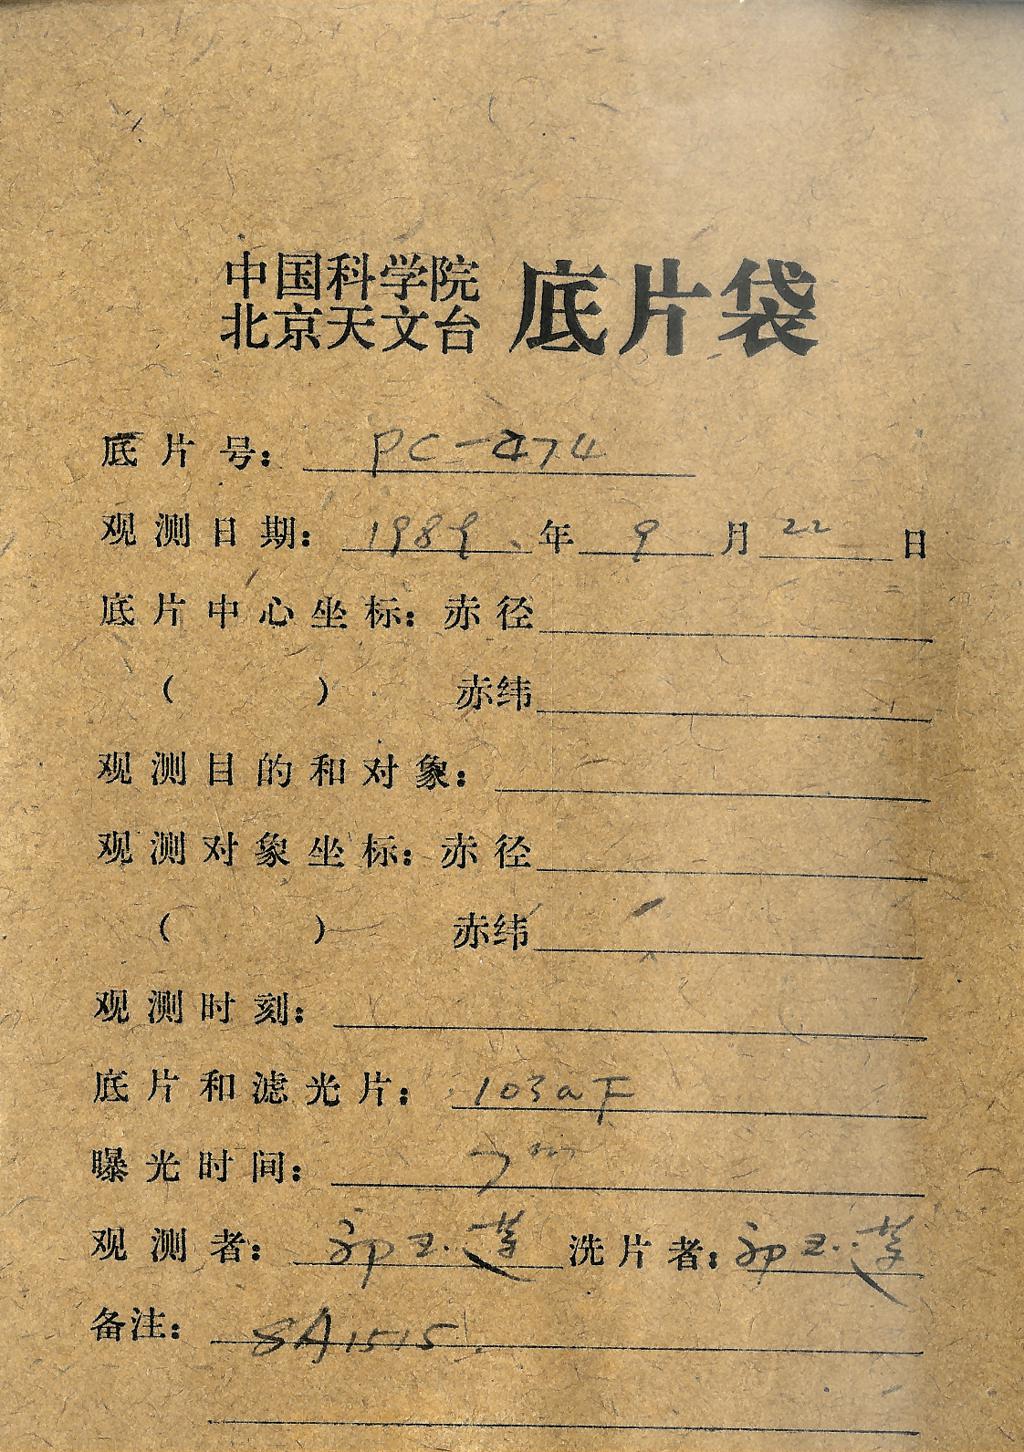 中国科学院
北京天文台
底片袋
底片号: PC-474
观测日期: 1989年9月22日
底片中心坐标: 赤径
( ) 赤纬
观测目的和对象:
观测对象坐标: 赤径
( ) 赤纬
观测时刻:
底片和滤光片: 103aF
曝光时间: 7
观测者: 洗片者:
备注: SA1515